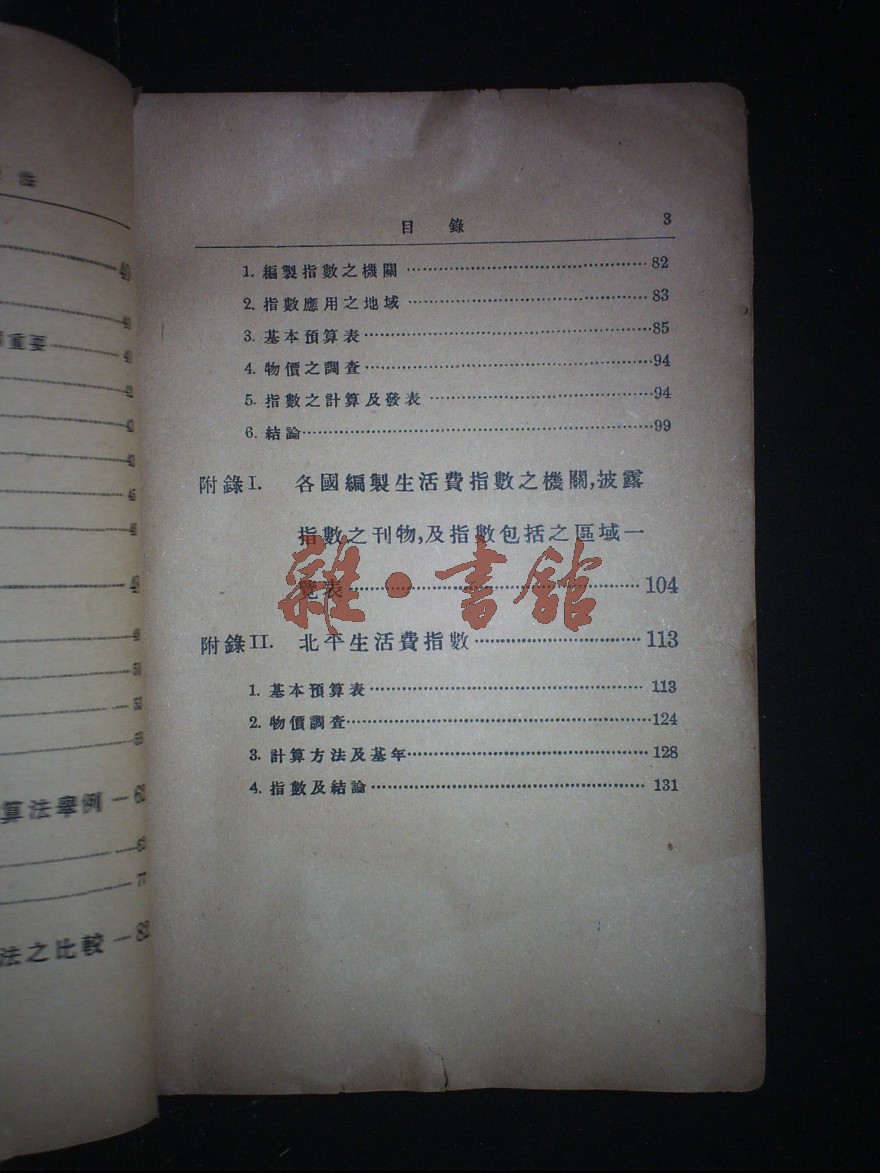 法
40
40
重要 41
42
43
43
45
46
48
49
50
53
58
算法舉例 62
62
77
法之比較 82
目錄 3
1. 編製指數之機關 82
2. 指數應用之地域 83
3. 基本預算表 85
4. 物價之調查 94
5. 指數之計算及發表 94
6. 結論 99
附錄I. 各國編製生活費指數之機關,披露
指數之刊物,及指數包括之區域一
覽表 104
附錄II. 北平生活費指數 113
1. 基本預算表 113
2. 物價調查 124
3. 計算方法及基年 128
4. 指數及結論 131
雜·書館